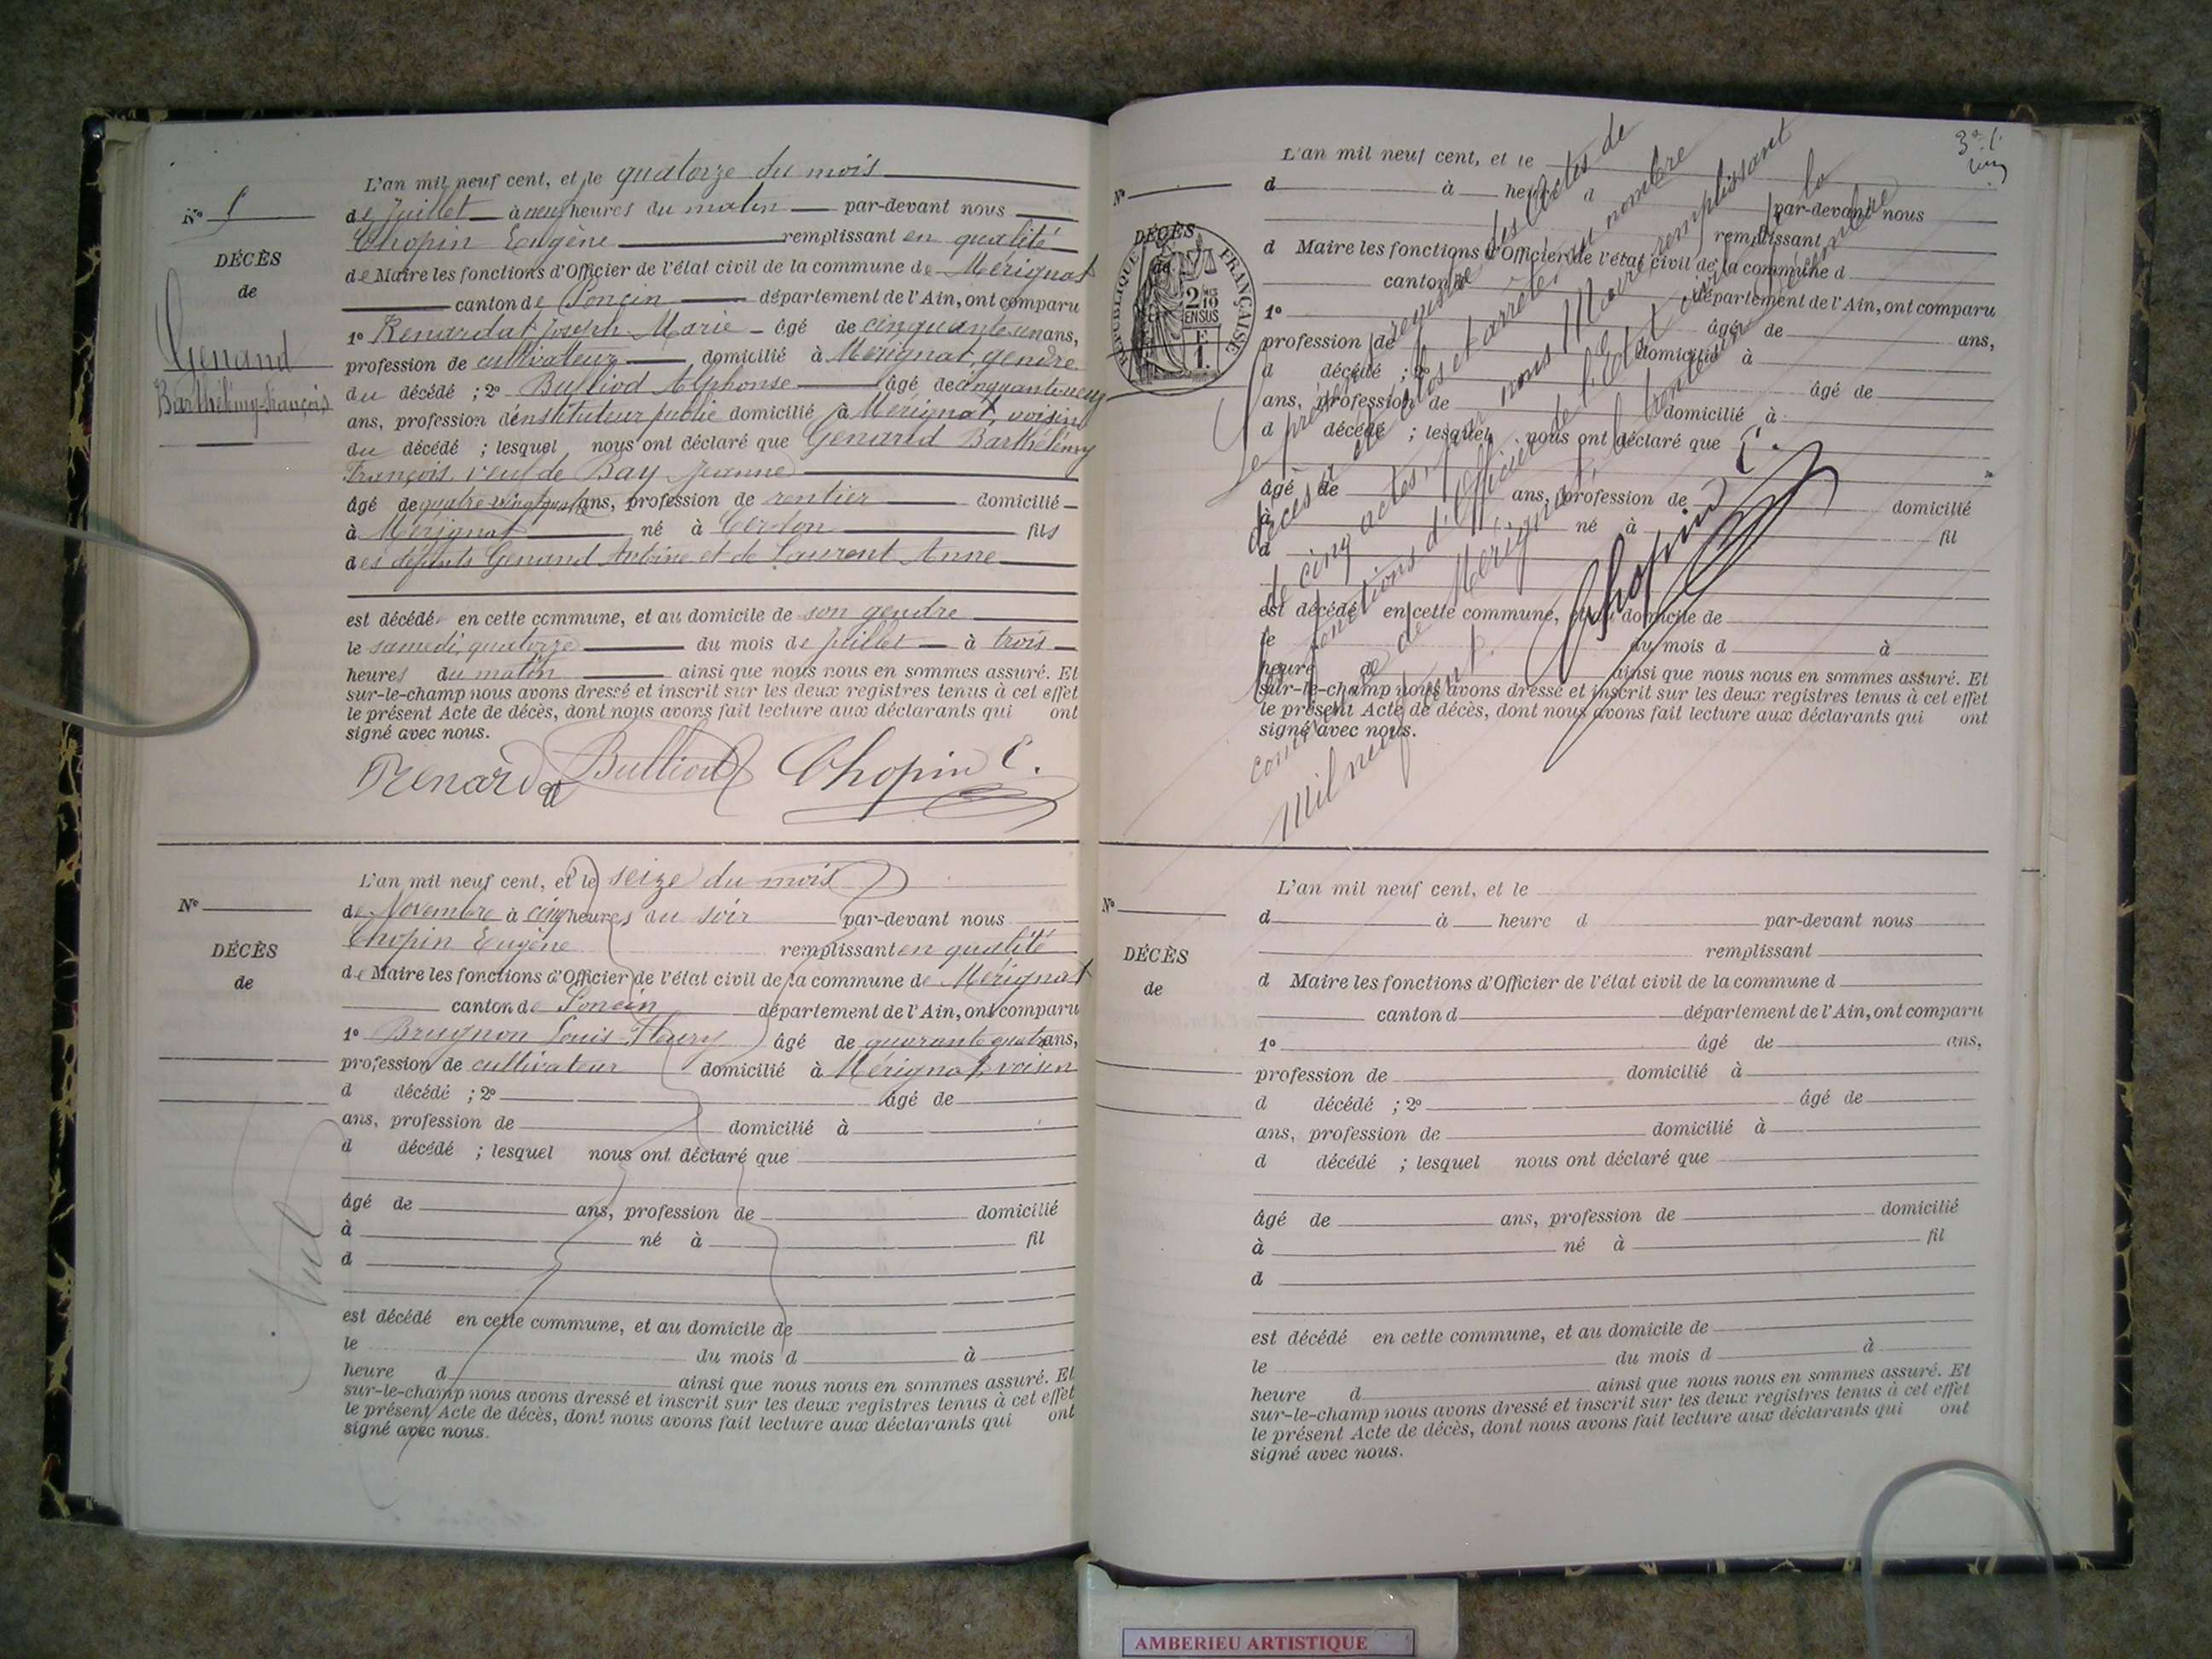 L'an mil neuf cent, et le quatorze du mois
N° 5
de Juillet à neuf heures du matin par-devant nous
Chopin Eugène remplissant en qualité
DÉCÈS
de Maire les fonctions d'Officier de l'état civil de la commune de Mérignat
de
canton de Poncin département de l'Ain, ont comparu
Genand
Barthélemy-François
1° Renardat Joseph-Marie âgé de cinquante un ans,
profession de cultivateur domicilié à Mérignat, gendre
du décédé ; 2° Bulliod Alphonse âgé de cinquante-neuf
ans, profession d'instituteur public domicilié à Mérignat, voisin
du décédé ; lesquel nous ont déclaré que Genand Barthélemy
François, veuf de Bay Jeanne
âgé de quatre vingt ans, profession de rentier domicilié
à Mérignat né à Cerdon fils
des défunts Genand Antoine et de Laurent Anne
est décédé en cette commune, et au domicile de son gendre
le samedi, quatorze du mois de Juillet à trois
heures du matin ainsi que nous nous en sommes assuré. Et
sur-le-champ nous avons dressé et inscrit sur les deux registres tenus à cet effet
le présent Acte de décès, dont nous avons fait lecture aux déclarants qui ont
signé avec nous.
Renardat Bulliod Chopin E.
L'an mil neuf cent, et le seize du mois
N°
de Novembre à cinq heures du soir par-devant nous
Chopin Eugène remplissant en qualité
DÉCÈS
de Maire les fonctions d'Officier de l'état civil de la commune de Mérignat
de
canton de Poncin département de l'Ain, ont comparu
1° Brugnon Louis-Fleury âgé de quarante quatre ans,
profession de cultivateur domicilié à Mérignat, voisin
d décédé ; 2° âgé de
ans, profession de domicilié à
d décédé ; lesquel nous ont déclaré que
âgé de ans, profession de domicilié
à né à fil
d
Nul
est décédé en cette commune, et au domicile de
le du mois d à
heure d ainsi que nous nous en sommes assuré. Et
sur-le-champ nous avons dressé et inscrit sur les deux registres tenus à cet effet
le présent Acte de décès, dont nous avons fait lecture aux déclarants qui ont
signé avec nous.
L'an mil neuf cent, et le
N°
d à heure d par-devant nous
remplissant
DÉCÈS
de
d Maire les fonctions d'Officier de l'état civil de la commune d
canton d département de l'Ain, ont comparu
RÉPUBLIQUE FRANÇAISE
2/10 EN SUS
1° âgé de ans,
profession de domicilié à
d décédé ; 2° âgé de
ans, profession de domicilié à
d décédé ; lesquel nous ont déclaré que
âgé de ans, profession de domicilié
à né à fil
d
est décédé en cette commune, et au domicile de
le du mois d à
heure d ainsi que nous nous en sommes assuré. Et
sur-le-champ nous avons dressé et inscrit sur les deux registres tenus à cet effet
le présent Acte de décès, dont nous avons fait lecture aux déclarants qui ont
signé avec nous.
Le présent registre des Actes de
décès a été clos et arrêté, au nombre
de cinq actes, par nous Maire remplissant
les fonctions d'Officier de l'Etat civil de la
commune de Mérignat, le trente un Décembre
Mil neuf cent.
Chopin E.
L'an mil neuf cent, et le
N°
d à heure d par-devant nous
remplissant
DÉCÈS
de
d Maire les fonctions d'Officier de l'état civil de la commune d
canton d département de l'Ain, ont comparu
1° âgé de ans,
profession de domicilié à
d décédé ; 2° âgé de
ans, profession de domicilié à
d décédé ; lesquel nous ont déclaré que
âgé de ans, profession de domicilié
à né à fil
d
est décédé en cette commune, et au domicile de
le du mois d à
heure d ainsi que nous nous en sommes assuré. Et
sur-le-champ nous avons dressé et inscrit sur les deux registres tenus à cet effet
le présent Acte de décès, dont nous avons fait lecture aux déclarants qui ont
signé avec nous.
AMBERIEU ARTISTIQUE